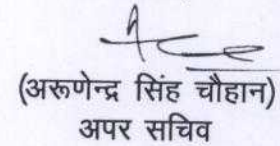 (अरूणेन्द्र सिंह चौहान)
अपर सचिव